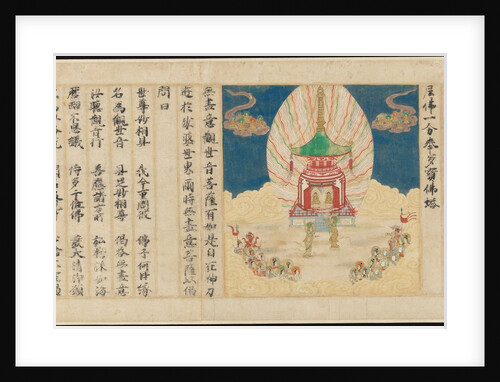 尼佛一分奉多寶佛塔
無盡意觀世音菩薩有如是自在神力
遊於娑婆世界爾時無盡意菩薩以偈
問曰
世尊妙相具 我今重問彼 佛子何因緣
名為觀世音 具足妙相尊 偈答無盡意
汝聽觀音行 善應諸方所 弘誓深如海
歷劫不思議 侍多千億佛 發大清淨願